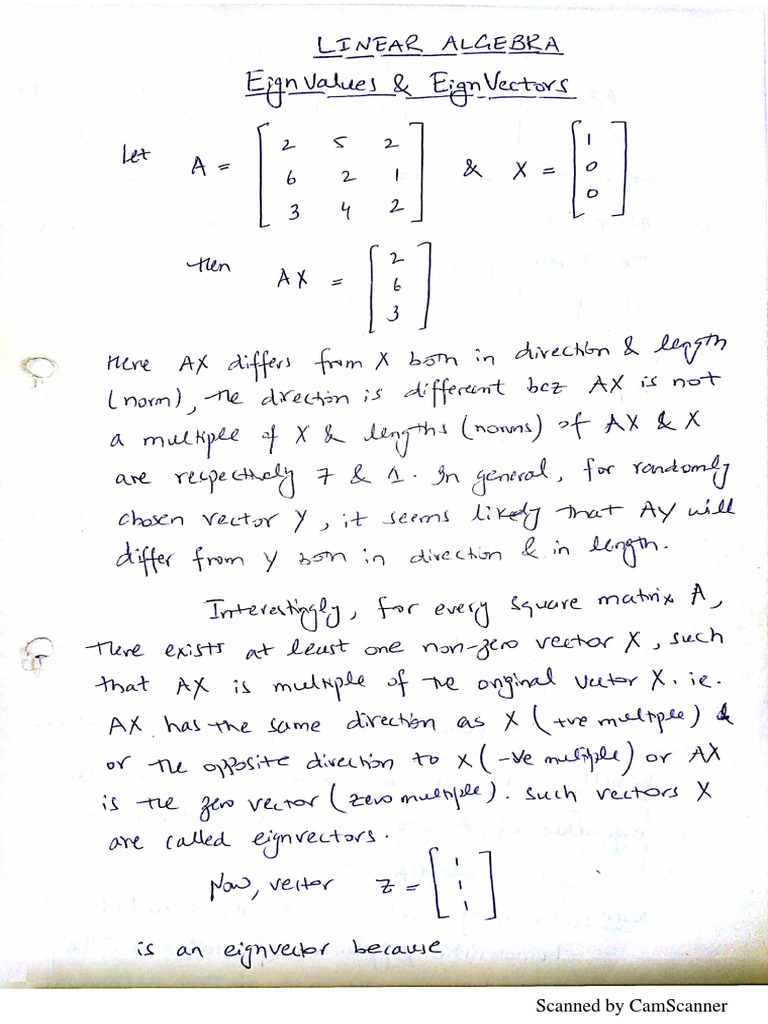 LINEAR ALGEBRA
EignValues & EignVectors
Let A = [ 2 5 2 ; 6 2 1 ; 3 4 2 ] & X = [ 1 ; 0 ; 0 ]
then AX = [ 2 ; 6 ; 3 ]
Here AX differs from X both in direction & length
(norm), the direction is different bcz AX is not
a multiple of X & lengths (norms) of AX & X
are respectively 7 & 1. In general, for randomly
chosen vector Y, it seems likely that AY will
differ from Y both in direction & in length.
Interestingly, for every square matrix A,
there exists at least one non-zero vector X, such
that AX is multiple of the original vector X. ie.
AX has the same direction as X (+ve multiple) &
or the opposite direction to X (-ve multiple) or AX
is the zero vector (zero multiple). Such vectors X
are called eignvectors.
Now, vector Z = [ 1 ; 1 ; 1 ]
is an eignvector because
Scanned by CamScanner